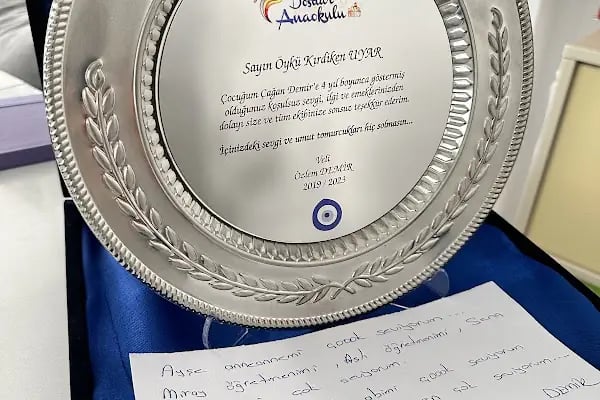 Anaokulu
Sayın Öykü Kırdiken UYAR
Çocuğum Çağan Demir'e 4 yıl boyunca göstermiş
olduğunuz koşulsuz sevgi, ilgi ve emeklerinizden
dolayı size ve tüm ekibinize sonsuz teşekkür ederim.
İçinizdeki sevgi ve umut tomurcukları hiç solmasın...
Veli
Özlem DEMİR
2019 / 2023
Ayşe anneannemi çoook seviyorum...
Miray öğretmenimi, Aslı öğretmenimi,
çok seviyorum.
abimi çoook seviyorum
çok
DEMİR